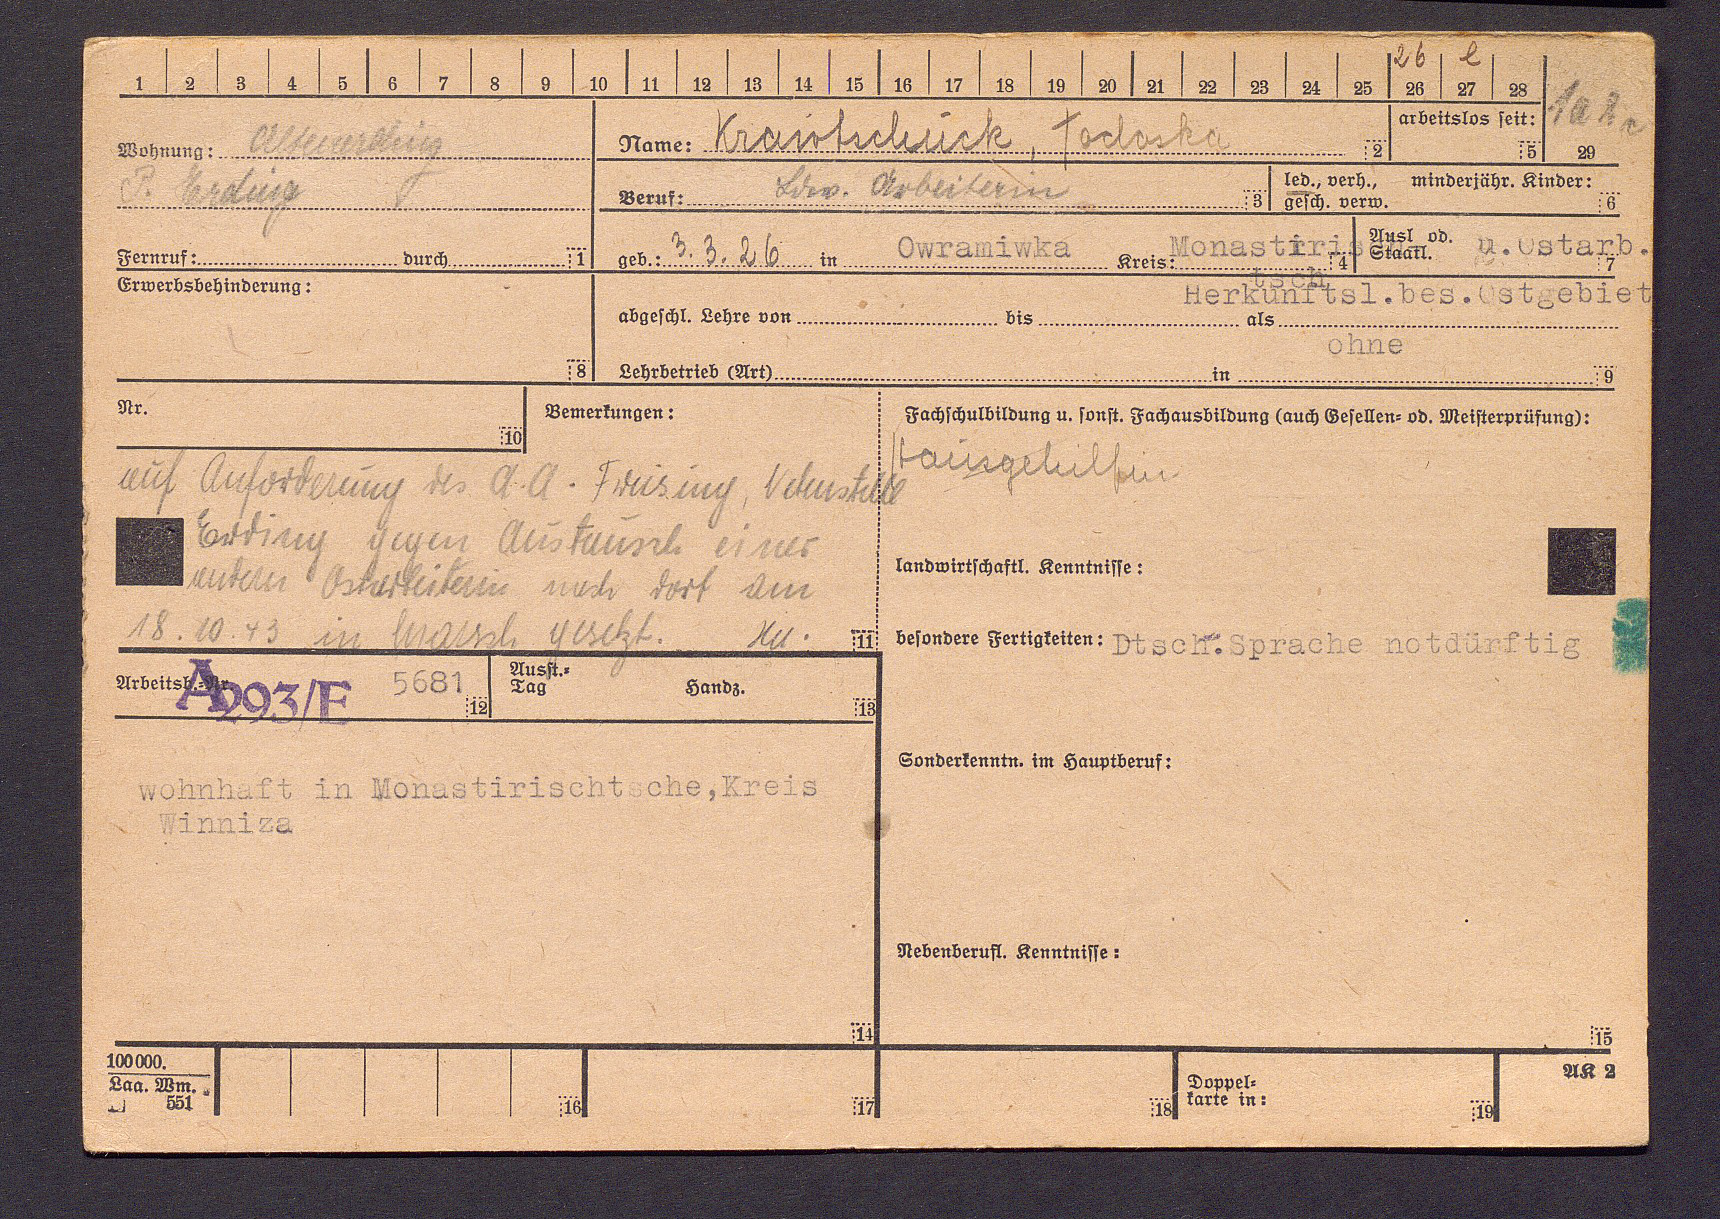 1 2 3 4 5 6 7 8 9 10 11 12 13 14 15 16 17 18 19 20 21 22 23 24 25 26 27 28
26 e
Wohnung: Altenerding
P. Erding
Fernruf: durch 1
Name: Krawtschuck, Todoska 2
arbeitslos seit: 5
29
Beruf: Ldw. Arbeiterin 3
led., verh., minderjähr. Kinder:
gesch. verw. 6
geb.: 3.3.26 in Owramiwka Kreis: Monastirisch 4
tsch
Ausl od. u. Ostarb.
Staatl. 7
Herkunftsl.bes.Ostgebiet
Erwerbsbehinderung:
8
abgeschl. Lehre von bis als
ohne
Lehrbetrieb (Art) in 9
Nr.
10
Bemerkungen:
auf Anforderung des A.A. Freising, Nebenstelle
Erding gegen Austausch einer
andern Ostarbeiterin nach dort am
18.10.43 in Marsch gesetzt. 11
Fachschulbildung u. sonst. Fachausbildung (auch Gesellen- od. Meisterprüfung):
Hausgehilfin
landwirtschaftl. Kenntnisse:
besondere Fertigkeiten: Dtsch.Sprache notdürftig
Arbeitsb.-Nr. 5681 12
A293/E
Ausst.-
Tag Handz. 13
wohnhaft in Monastirischtsche,Kreis
Winniza
14
Sonderkenntn. im Hauptberuf:
Nebenberufl. Kenntnisse:
15
100000.
Laa. Wm.
551
16
17
18
Doppel-
karte in: 19
AK 2